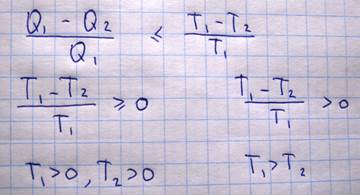 (Q₁ - Q₂)/Q₁ ≤ (T₁ - T₂)/T₁
(T₁ - T₂)/T₁ ≥ 0    (T₁ - T₂)/T₁ > 0
T₁ > 0, T₂ > 0    T₁ > T₂